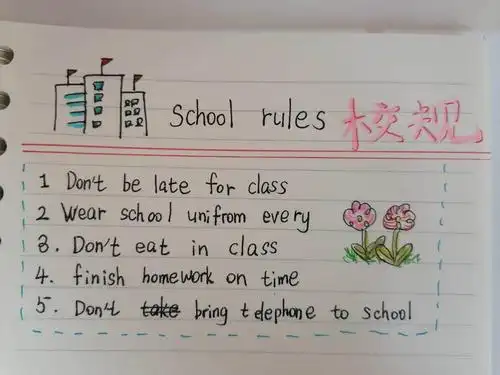 School rules 校规
1 Don't be late for class
2 Wear school unifrom every
3. Don't eat in class
4. finish homework on time
5. Don't take bring telephone to school